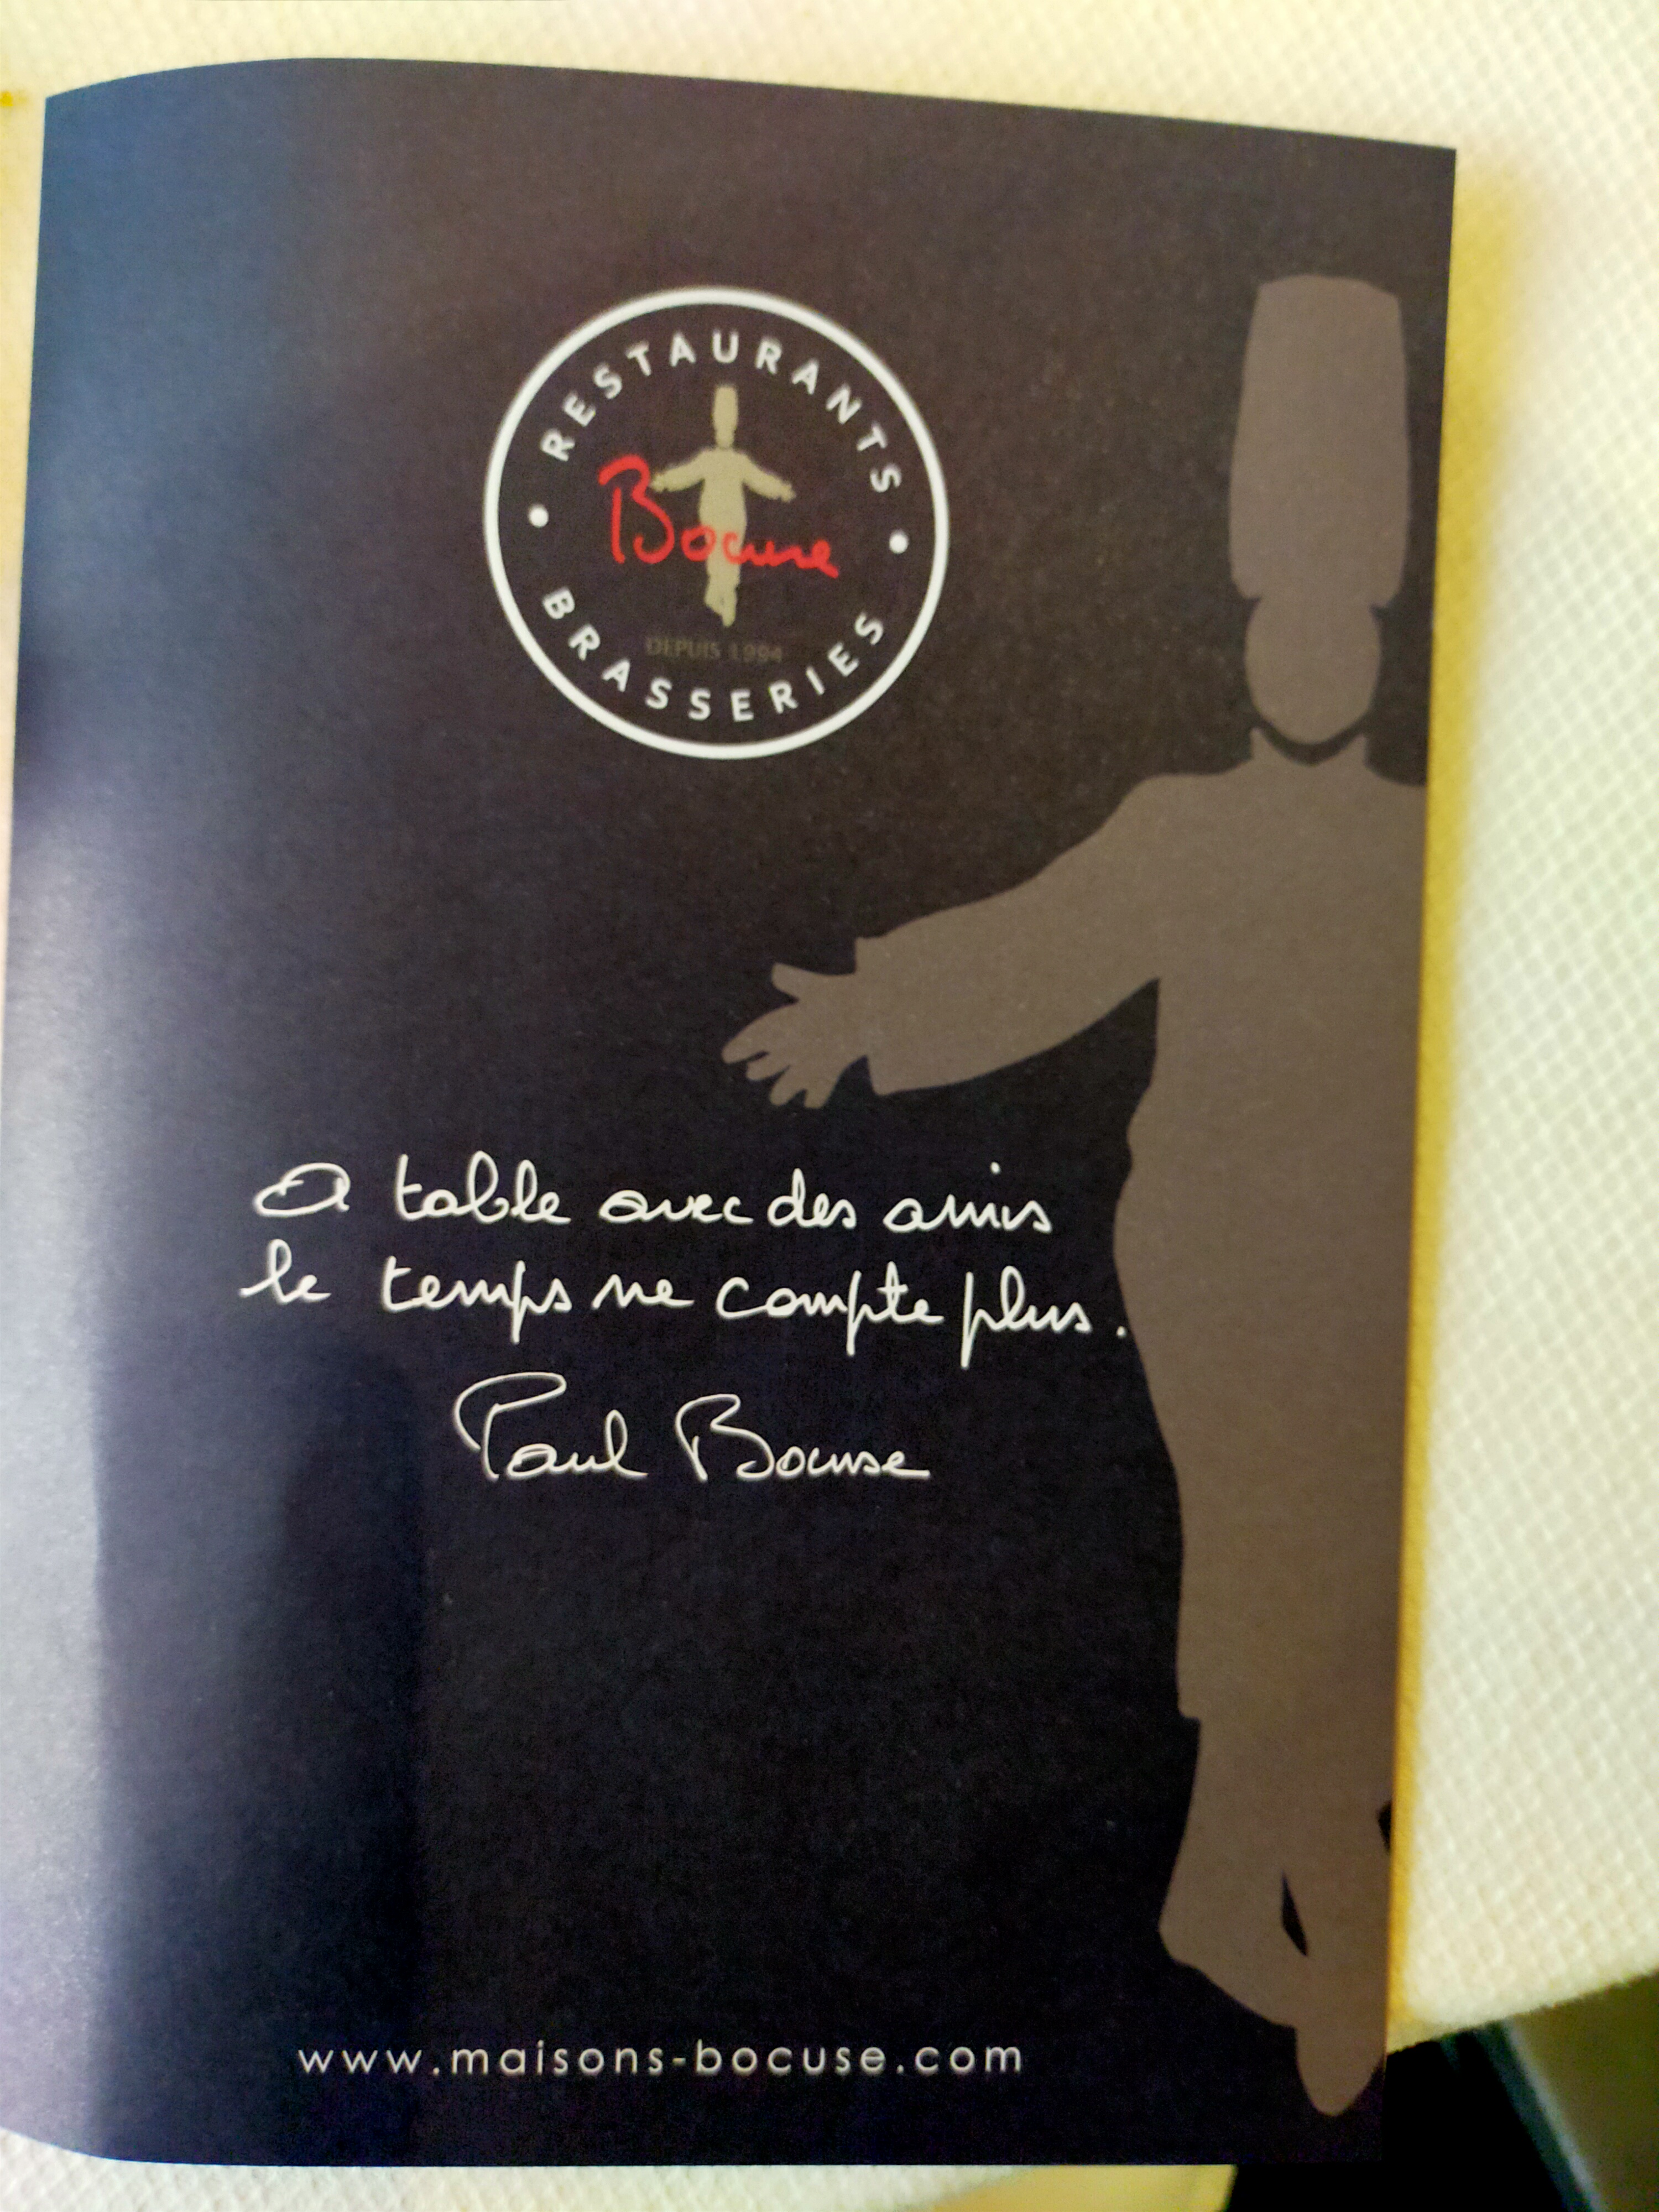 RESTAURANTS
Bocuse
DEPUIS 1994
BRASSERIES
A table avec des amis
le temps ne compte plus.
Paul Bocuse
www.maisons-bocuse.com